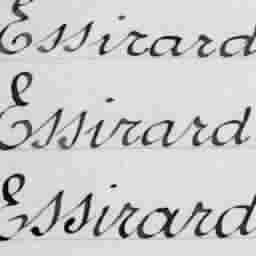 Essirard
Essirard
Essirard